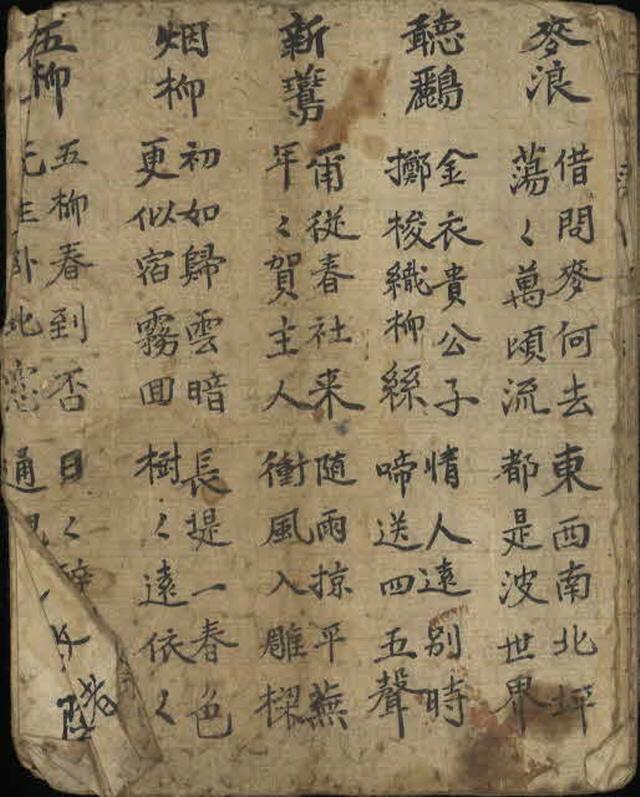 麥浪
借問麥何去
蕩〻萬頃流
東西南北坪
都是波世界
聽鸝
金衣貴公子
擲梭織柳絲
情人遠別時
啼送四五聲
新鷰
爾從春社来
年〻賀主人
随雨掠平蕪
衝風入雕樑
烟柳
初如歸雲暗
更似宿霧囬
長提一春色
樹〻遠依〻
五柳
五柳春到否
卧北窓
日〻醉
通
階